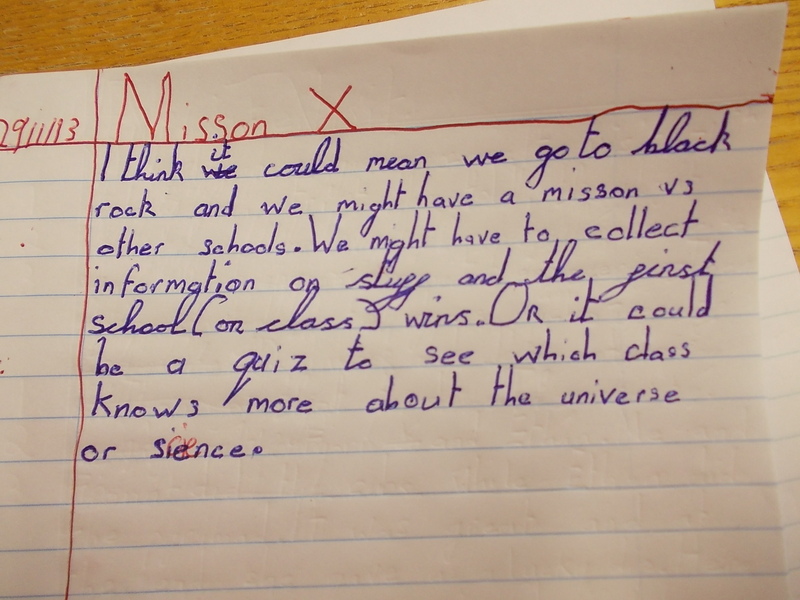 29/11/13 Misson X
I think it could mean we go to black
rock and we might have a misson vs
other schools. We might have to collect
information on stuff and the first
school (or class) wins. Or it could
be a quiz to see which class
knows more about the universe
or sience.